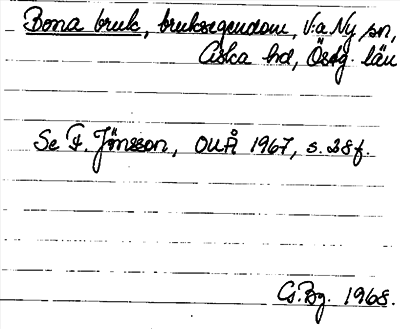 Bona bruk, bruksegendom, V:a Ny sn,
Aska hd, Östg. län
Se F. Jönsson, OUÅ 1967, s. 28f.
Cs. Bg. 1968.